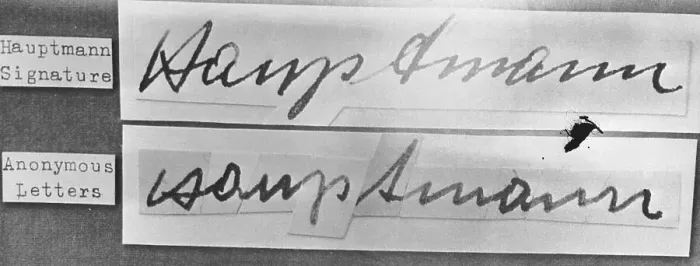 Hauptmann
Signature
Hauptmann
Anonymous
Letters
Hauptmann